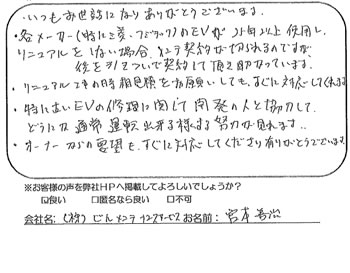 いつもお世話になりありがとうございます。
・各メーカー(特に三菱、フジテック)のEVが 25年以上使用し、
リニュアルをしない場合、メンテ契約が切られるのですが
後を引きついで契約して頂き助かっています。
・リニュアル工事の時相見積をお願いしても、すぐに対応してくれます
・特に古いEVの修理に関して開発の人と協力して、
どうにか通常運転出来る様にする努力が見れます。
・オーナーからの要望も、すぐに対応してくださりありがとうございます。
※お客様の声を弊社HPへ掲載してよろしいでしょうか?
☑良い □匿名なら良い □不可
会社名: (株)ビルメンテナンスサービス お名前: 宮本